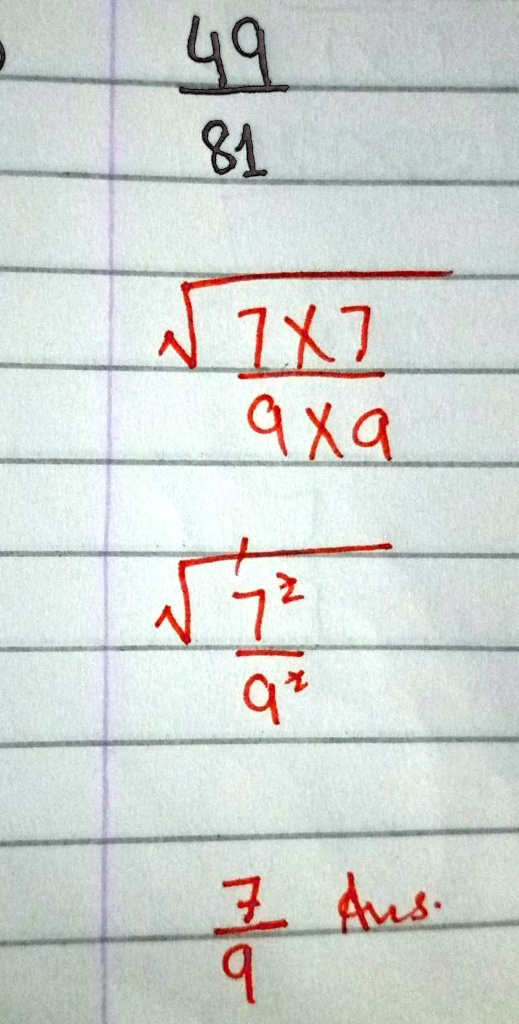 49
81
√7×7
9×9
√7²
9²
7 Ans.
9